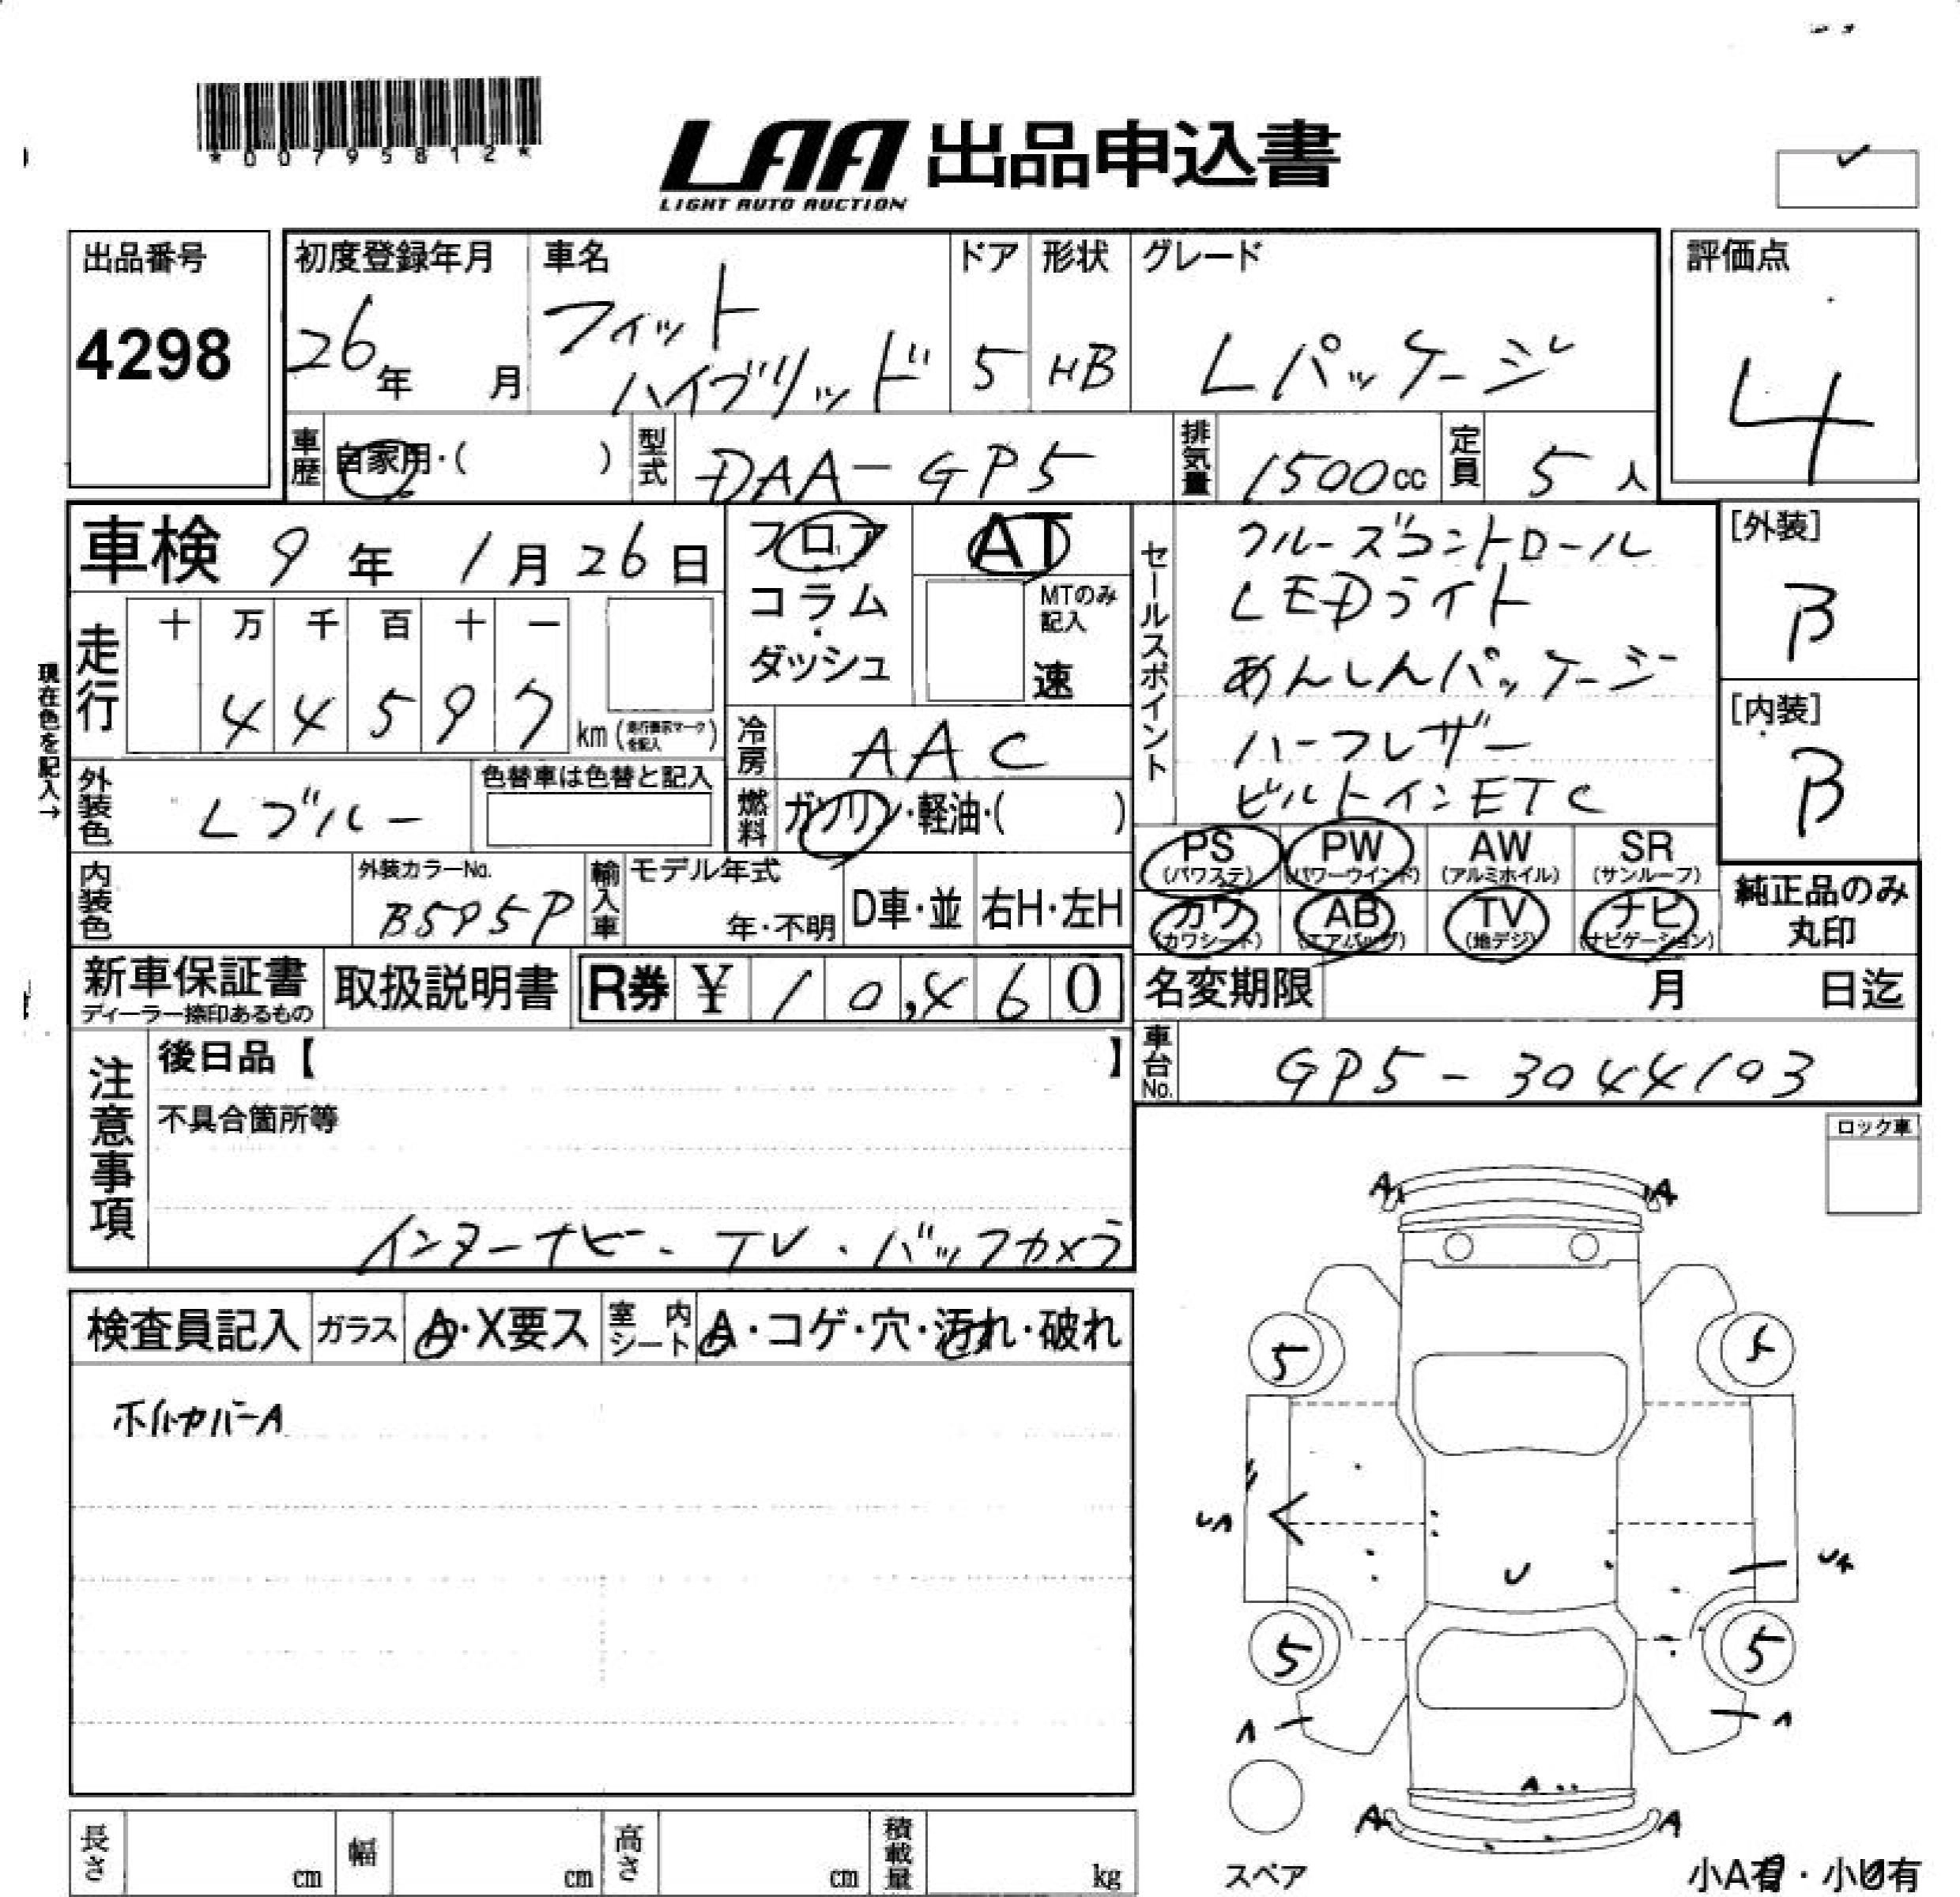 *00795812*
LAA 出品申込書
LIGHT AUTO AUCTION
出品番号
4298
初度登録年月
26年 月
車名
フィット
ハイブリッド
ドア
5
形状
HB
グレード
Lパッケージ
評価点
4
車歴 自家用・( )
型式 DAA-GP5
排気量 1500cc
定員 5人
車検 9年 1月 26日
フロア
コラム
・
ダッシュ
AT
MTのみ
記入
速
セールスポイント
クルーズコントロール
LEDライト
あんしんパッケージ
ハーフレザー
ビルトインETC
[外装]
B
[内装]
B
現在色を記入→
走行
十 万 千 百 十 一
4 4 5 9 7 km (走行表示マークを記入)
冷房 AAC
燃料 ガソリン・軽油・( )
外装色 Lブルー
色替車は色替と記入
内装色
外装カラーNo.
B595P
輸入車
モデル年式
年・不明
D車・並
右H・左H
PS
(パワステ)
PW
(パワーウインド)
AW
(アルミホイル)
SR
(サンルーフ)
カワ
(カワシート)
AB
(エアバッグ)
TV
(地デジ)
ナビ
(ナビゲーション)
純正品のみ
丸印
新車保証書
ディーラー捺印あるもの
取扱説明書
R券 ¥ 10,460
名変期限 月 日迄
車台No. GP5-3044103
注意事項
後日品【 】
不具合箇所等
インターナビ・TV・バックカメラ
ロック車
検査員記入
ガラス A・X要ス
室内シート A・コゲ・穴・汚れ・破れ
ホイルカバーA
A A
5
UA
U
5 5
A A
A
A A
スペア
小A有・小U有
長さ cm
幅 cm
高さ cm
積載量 kg